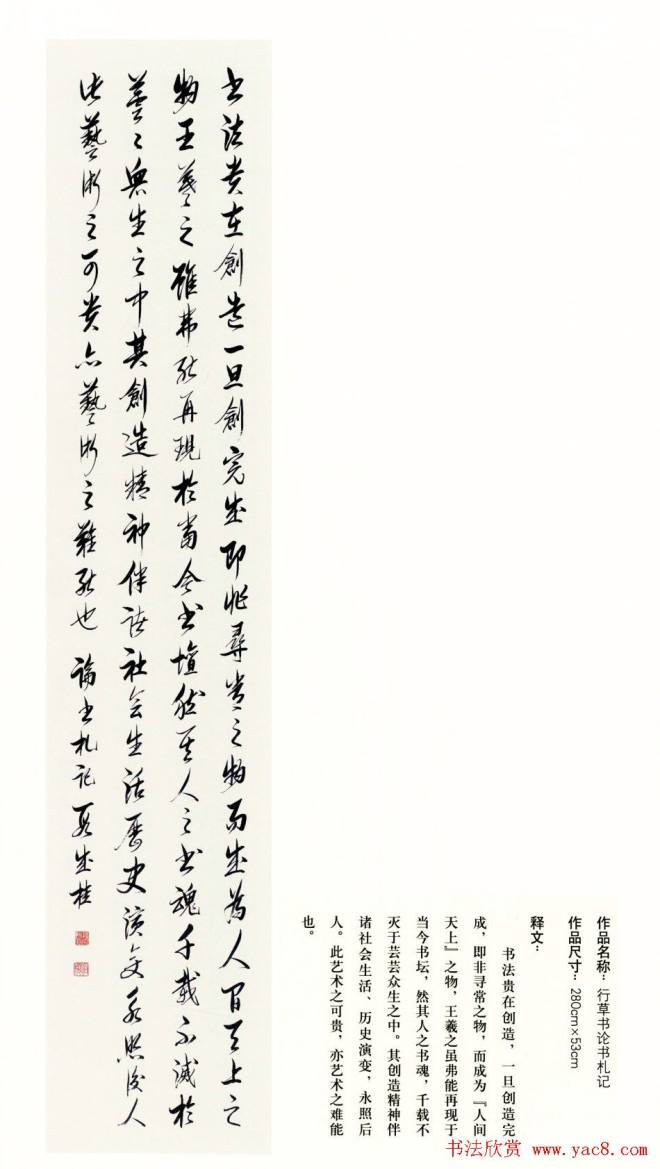 书法貴在創造一旦創完成即非尋常之物而成為人间天上之
物王羲之雖弗能再現於當今书壇然其人之书魂千載不滅於
芸々眾生之中其創造精神伴諸社会生活歷史演变永照後人
此藝術之可貴亦藝術之難能也 論书札记 段成桂
作品名称：行草书论书札记
作品尺寸：280cm×53cm
释文：
书法贵在创造，一旦创造完
成，即非寻常之物，而成为『人间
天上』之物，王羲之虽弗能再现于
当今书坛，然其人之书魂，千载不
灭于芸芸众生之中。其创造精神伴
诸社会生活、历史演变，永照后
人。此艺术之可贵，亦艺术之难能
也。
书法欣赏 www.yac8.com